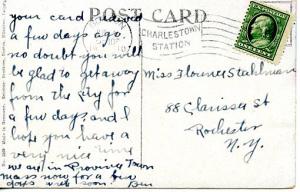 POST CARD
your card received
a few days ago.
no doubt you will
be glad to get away
from the city for
a few days and I
hope you have a
very nice time
we are in Province Town
mass now for a few
days with son. Ben
CHARLESTOWN
STATION
Miss Florence Stahlman
88 Clarissa St
Rochester
N.Y.